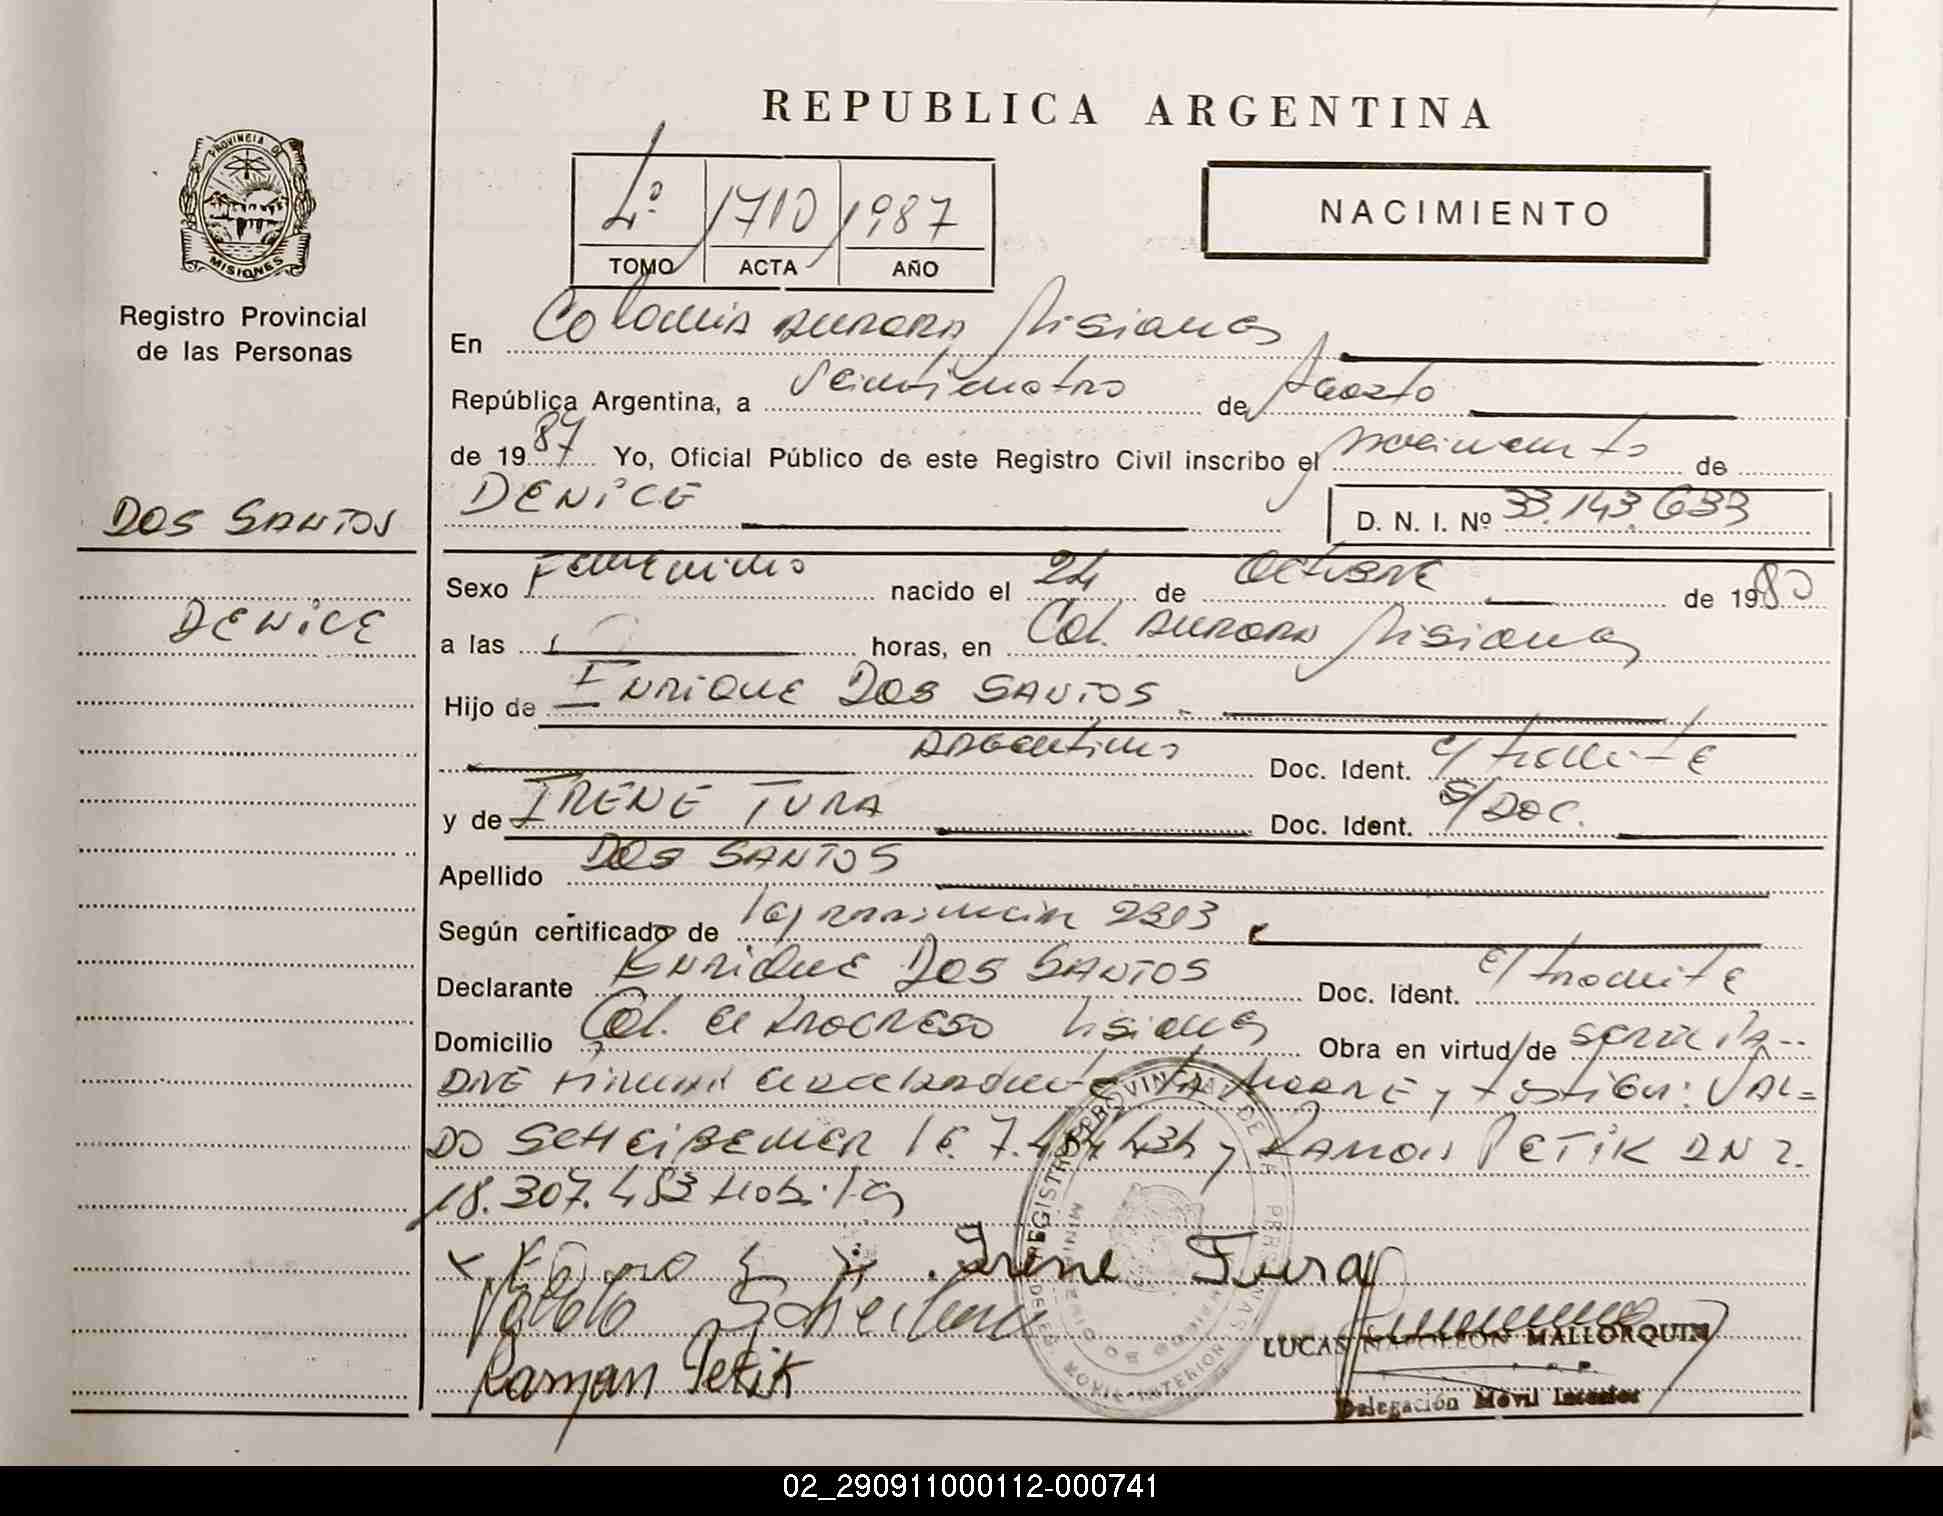 REPUBLICA ARGENTINA
PROVINCIA DE
MISIONES
Registro Provincial
de las Personas
4º 1710 1987
TOMO ACTA AÑO
NACIMIENTO
En Colonia Aurora Misiones
República Argentina, a Veinticuatro de Agosto
de 1987 Yo, Oficial Público de este Registro Civil inscribo el nacimiento de
DENICE D. N. I. Nº 33.143.633
DOS SANTOS
DENICE
Sexo Femenino nacido el 24 de OCTUBRE de 1980
a las horas, en Col. Aurora Misiones
Hijo de ENRIQUE DOS SANTOS
Argentino Doc. Ident. e/ tramite
y de IRENE TURA Doc. Ident. s/ DOC.
Apellido DOS SANTOS
Según certificado de 2313
Declarante ENRIQUE DOS SANTOS Doc. Ident. e/ tramite
Domicilio Col. el Progreso Misiones Obra en virtud de
MADRE y testigos: VAL=
DO SCHEIBEMER y RAMON PETIK DNI.
18.307.483
Irene Tura
Raman Petik
REGISTRO PROVINCIAL DE LAS PERSONAS
LUCAS NAPOLEON MALLORQUIN
Delegación Móvil Interior
02_290911000112-000741